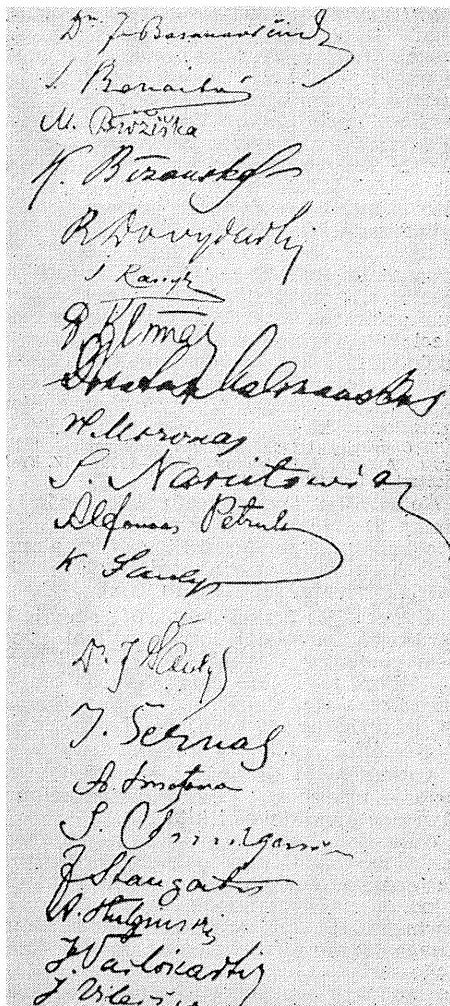 Dr. J. Basanavičius
S. Banaitis
M. Biržiška
K. Bizauskas
P. Dovydaitis
S. Kairys
P. Klimas
Donatas Malinauskas
Wl. Mironas
S. Narutowicz
Alfonsas Petrulis
K. Šaulys
Dr. J. Šaulys
J. Šernas
A. Smetona
J. Smilgevičius
J. Staugaitis
A. Stulginskis
J. Vailokaitis
J. Vileišis